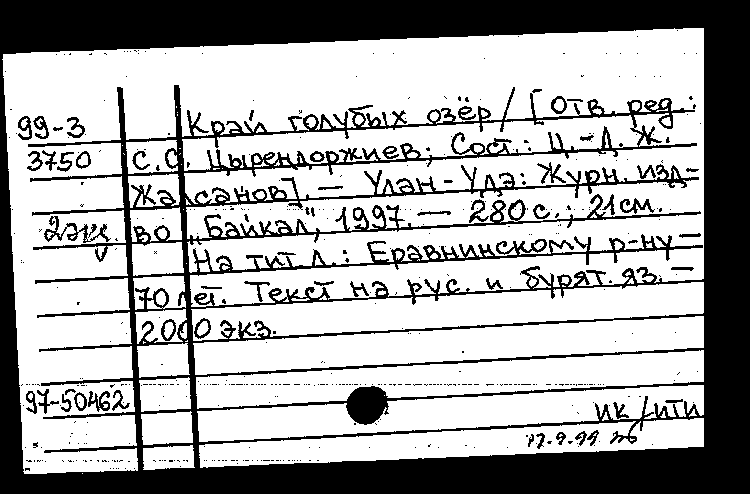 99-3 Край голубых озёр / [Отв. ред.:
3750 С.С. Цырендоржиев; Сост.: Ц.-Д. Ж.
Жалсанов]. — Улан-Удэ: Журн. изд-
2экз во „Байкал", 1997. — 280 с.; 21 см.
На тит. л.: Еравнинскому р-ну —
70 лет. Текст на рус. и бурят. яз. —
2000 экз.
97-50462
ИК/ИТИ
17.9.99